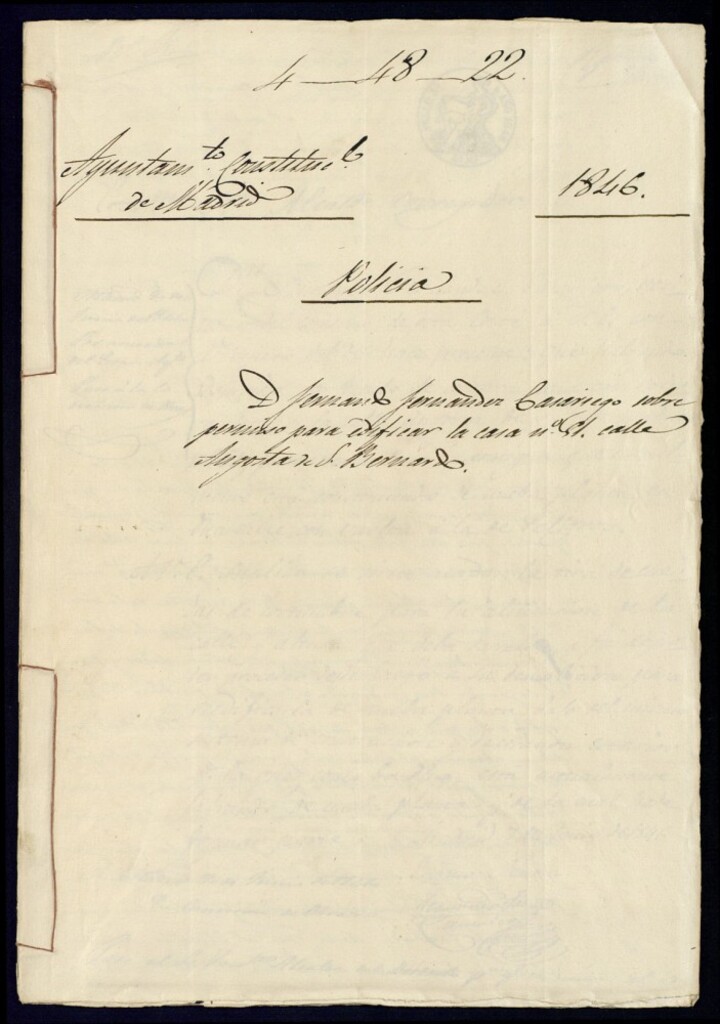 4—48—22.
Ayuntam.to Constituc.l
de Madrid
1846.
Policia
D Fernando Fernandez Casariego sobre
permiso para edificar la casa nº calle
Angosta de S. Bernardo.